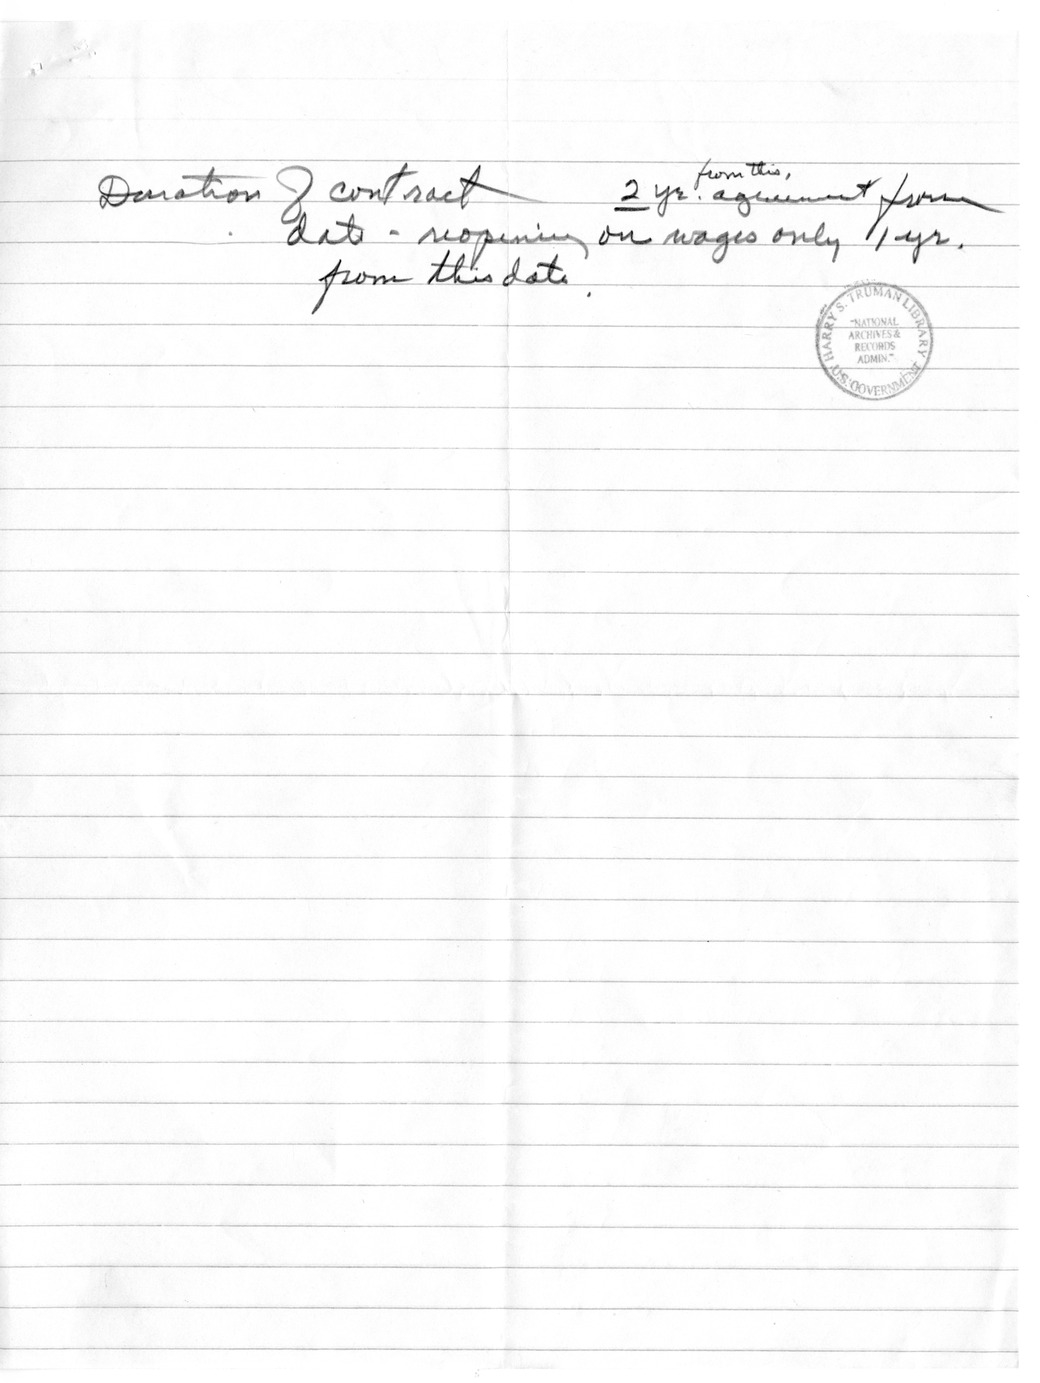 from this,
Duration of contract 2 yr. agreement from
date - reopening on wages only 1 yr.
from this date.
HARRY S. TRUMAN LIBRARY
"NATIONAL
ARCHIVES &
RECORDS
ADMIN."
U.S. GOVERNMENT